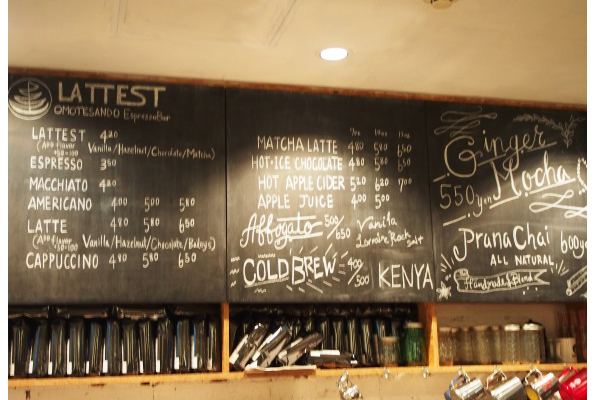 LATTEST
OMOTESANDO EspressoBar
LATTEST 420
Vanilla/Hazelnut/Chocolate/Matcha)
ESPRESSO 350
MACCHIATO 420
AMERICANO 400 500 580
LATTE 480 580 650
Vanilla/Hazelnut/Chocolate/Baileys)
CAPPUCCINO 480 580 650
7oz 10oz 12oz
MATCHA LATTE 480 580 650
HOT・ICE CHOCOLATE 480 580 650
HOT APPLE CIDER 520 620 700
APPLE JUICE 400 500
Affogato 500/650
Vanilla
Lorraine Rock Salt
COLD BREW 400/500
KENYA
Ginger
Mocha
550yen
Prana Chai 600yen
ALL NATURAL
Handmade Blend